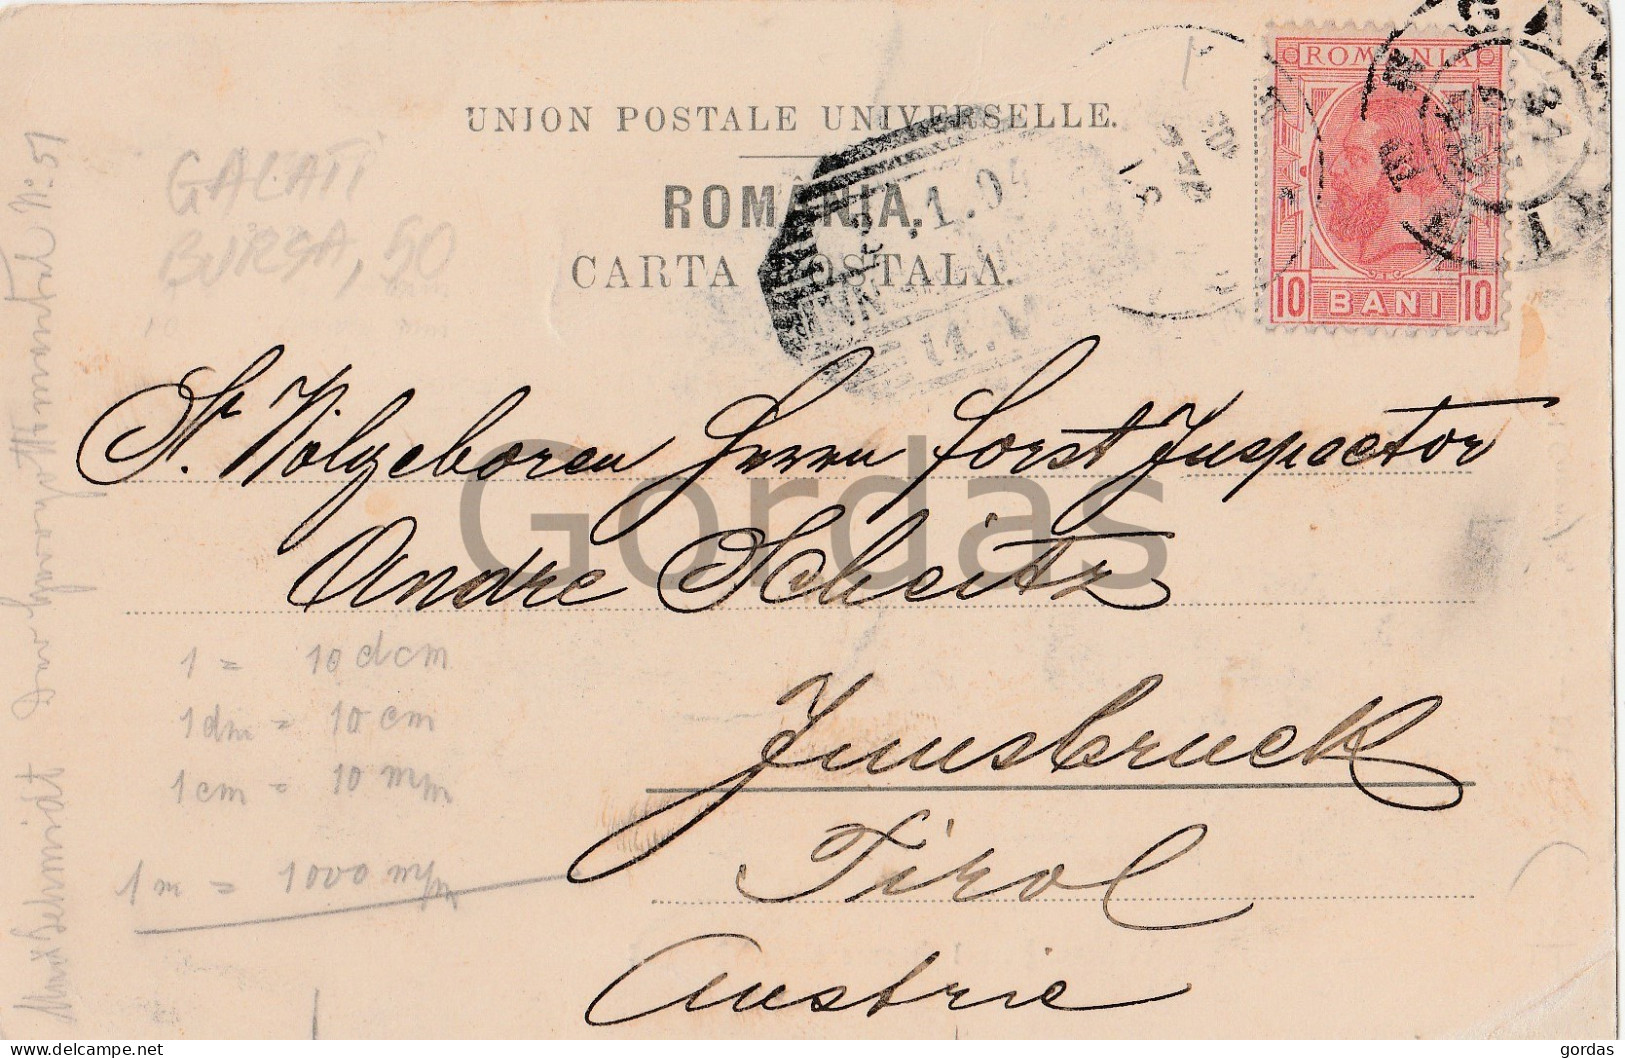 UNION POSTALE UNIVERSELLE.
ROMÂNIA.
CARTA POSTALA.
ROMANIA
10 BANI 10
.1.04
11.V
GALATI
BURSA, 50
Sr. Wolgeboren Herrn Forst Inspector
Andre Scheitz
Innsbruck
Tirol
Austrie
1 = 10 dcm
1dm = 10 cm
1cm = 10 mm
1m = 1000 mm
Müngenmidt
N: 51
Gordas
gordas